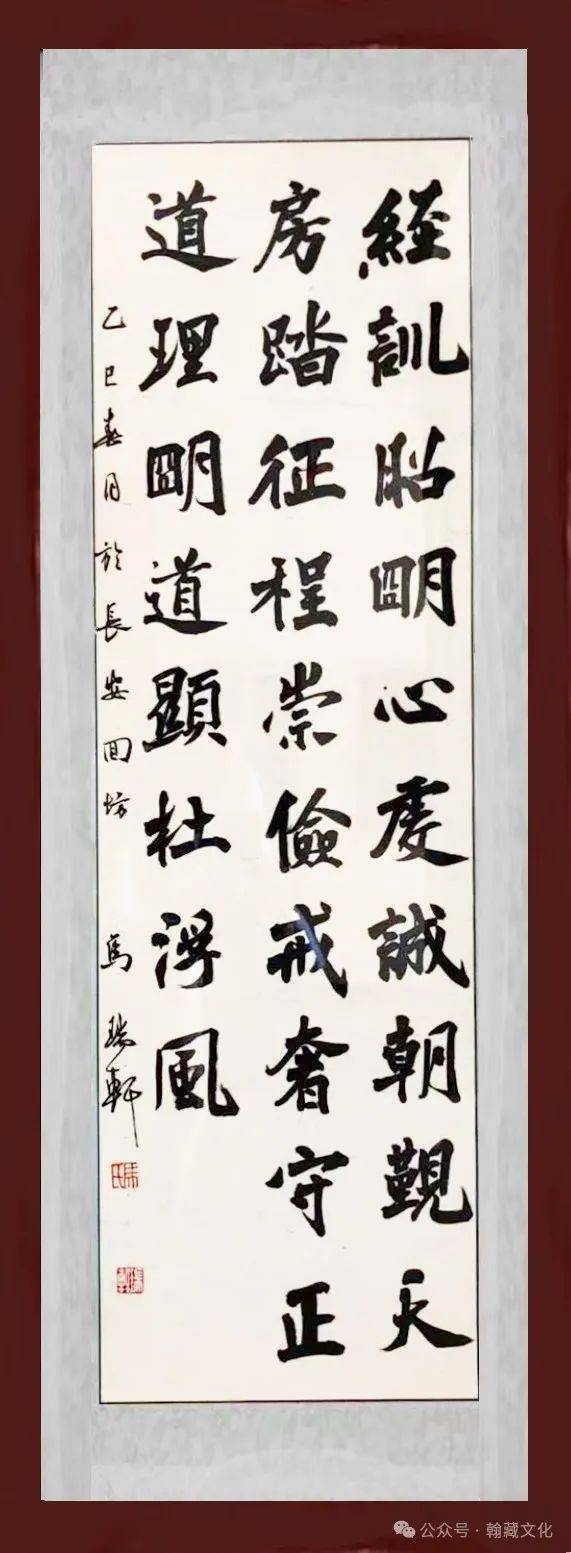 經訓昭明心虔誠朝覲天
房踏征程崇儉戒奢守正
道理明道顯杜浮風
乙巳春月於長安回坊 馬瑞軒
公众号·翰藏文化